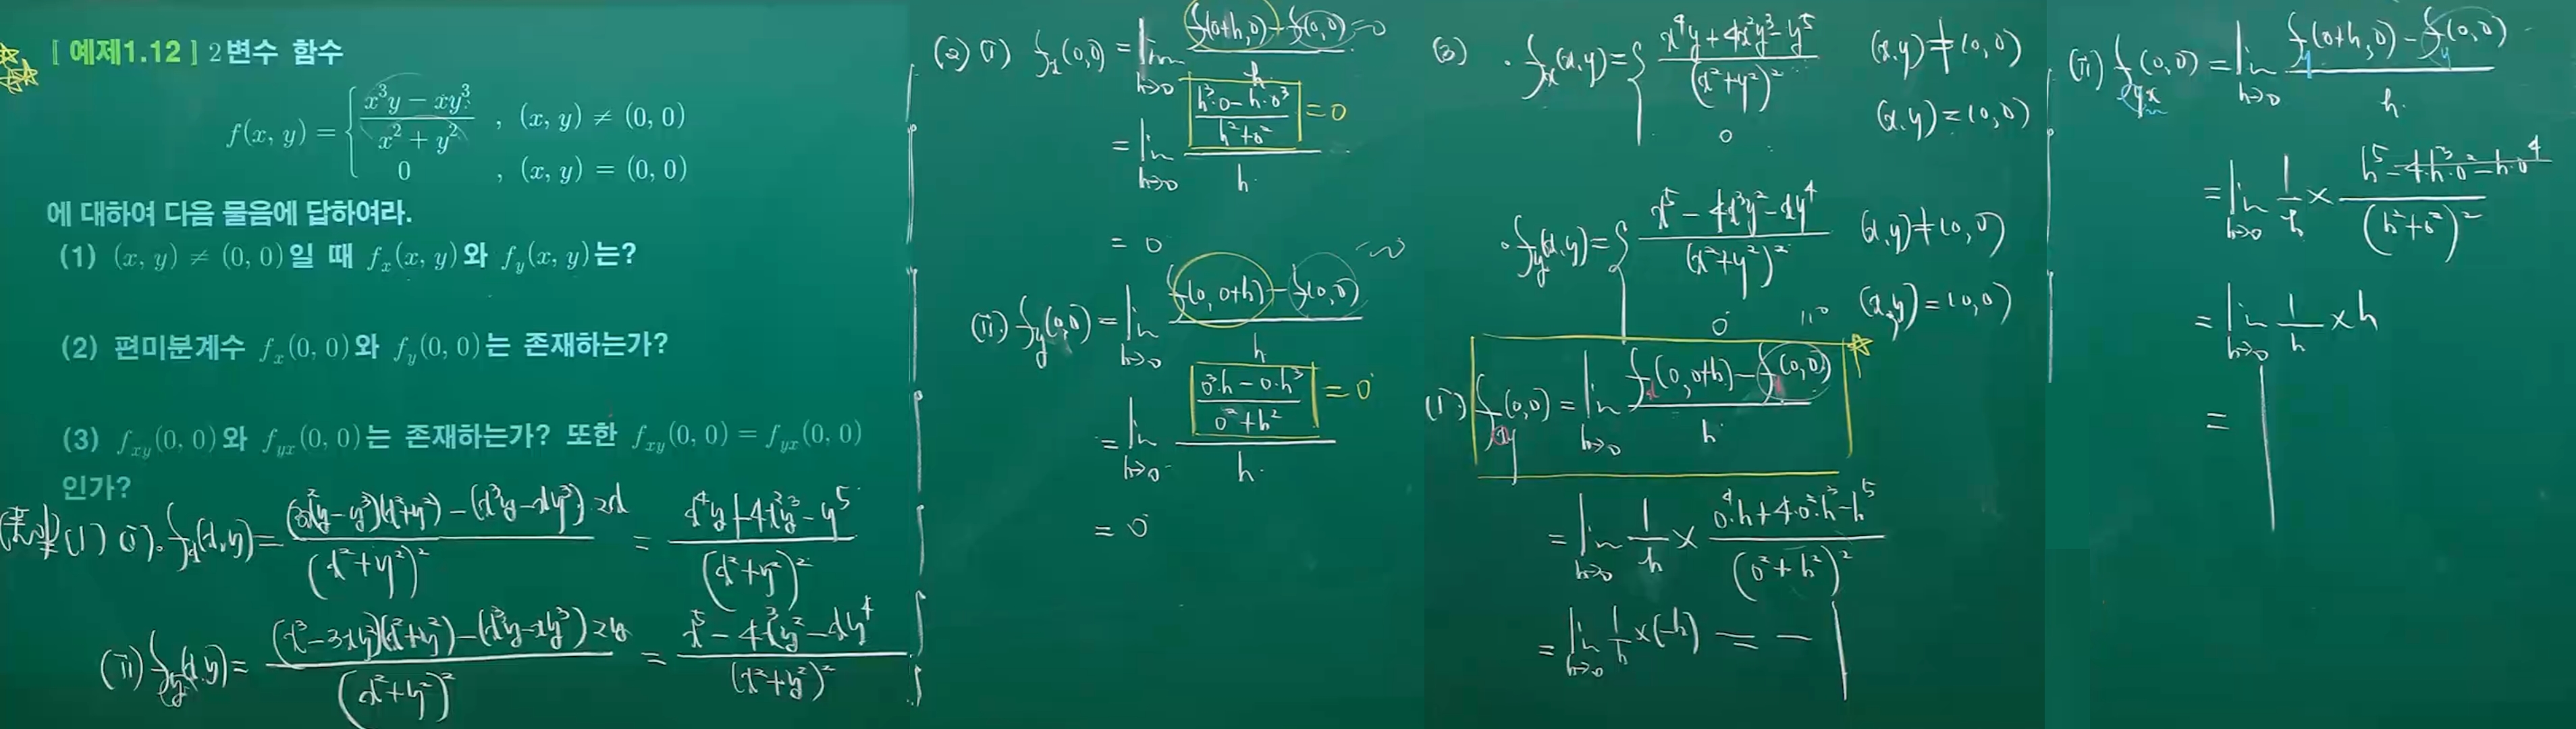 [ 예제1.12 ] 2변수 함수
f(x, y) = { (x³y − xy³)/(x² + y²) , (x, y) ≠ (0, 0)
0 , (x, y) = (0, 0)
에 대하여 다음 물음에 답하여라.
(1) (x, y) ≠ (0, 0)일 때 fₓ(x, y)와 f_y(x, y)는?
(2) 편미분계수 fₓ(0, 0)와 f_y(0, 0)는 존재하는가?
(3) f_xy(0, 0)와 f_yx(0, 0)는 존재하는가? 또한 f_xy(0, 0) = f_yx(0, 0)
인가?
(풀이) (1) (i). fₓ(x,y) = ((3x²y−y³)(x²+y²) − (x³y−xy³)2x)/(x²+y²)² = (x⁴y+4x²y³−y⁵)/(x²+y²)²
(ii) f_y(x,y) = ((x³−3xy²)(x²+y²) − (x³y−xy³)2y)/(x²+y²)² = (x⁵−4x³y²−xy⁴)/(x²+y²)²
(2) (i) fₓ(0,0) = lim h→0 (f(0+h,0) − f(0,0))/h =0
= lim h→0 ((h³·0−h·0³)/(h²+0²))/h. =0
= 0
(ii) f_y(0,0) = lim h→0 (f(0,0+h) − f(0,0))/h =0
= lim h→0 ((0³·h − 0·h³)/(0²+h²))/h. =0
= 0
(3) · fₓ(x,y) = { (x⁴y+4x²y³−y⁵)/(x²+y²)² (x,y)≠(0,0)
0 (x,y)=(0,0)
· f_y(x,y) = { (x⁵−4x³y²−xy⁴)/(x²+y²)² (x,y)≠(0,0)
0 (x,y)=(0,0)
(i) f_xy(0,0) = lim h→0 (fₓ(0,0+h) − fₓ(0,0))/h =0
= lim h→0 1/h × (0⁴·h+4·0²·h³−h⁵)/(0²+h²)²
= lim h→0 1/h × (−h) = −1
(ii) f_yx(0,0) = lim h→0 (f_y(0+h,0) − f_y(0,0))/h
= lim h→0 1/h × (h⁵−4·h³·0²−h·0⁴)/(h²+0²)²
= lim h→0 1/h × h
= 1